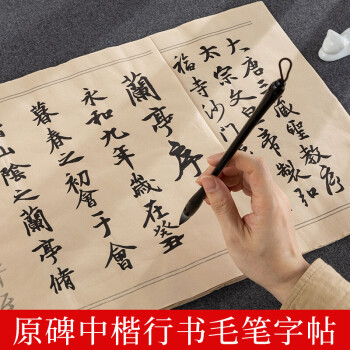 大唐三藏聖教序
太宗文皇帝製弘
福寺沙門
蘭亭序
永和九年歲在癸丑
暮春之初會于會
山陰之蘭亭脩
原碑中楷行书毛笔字帖